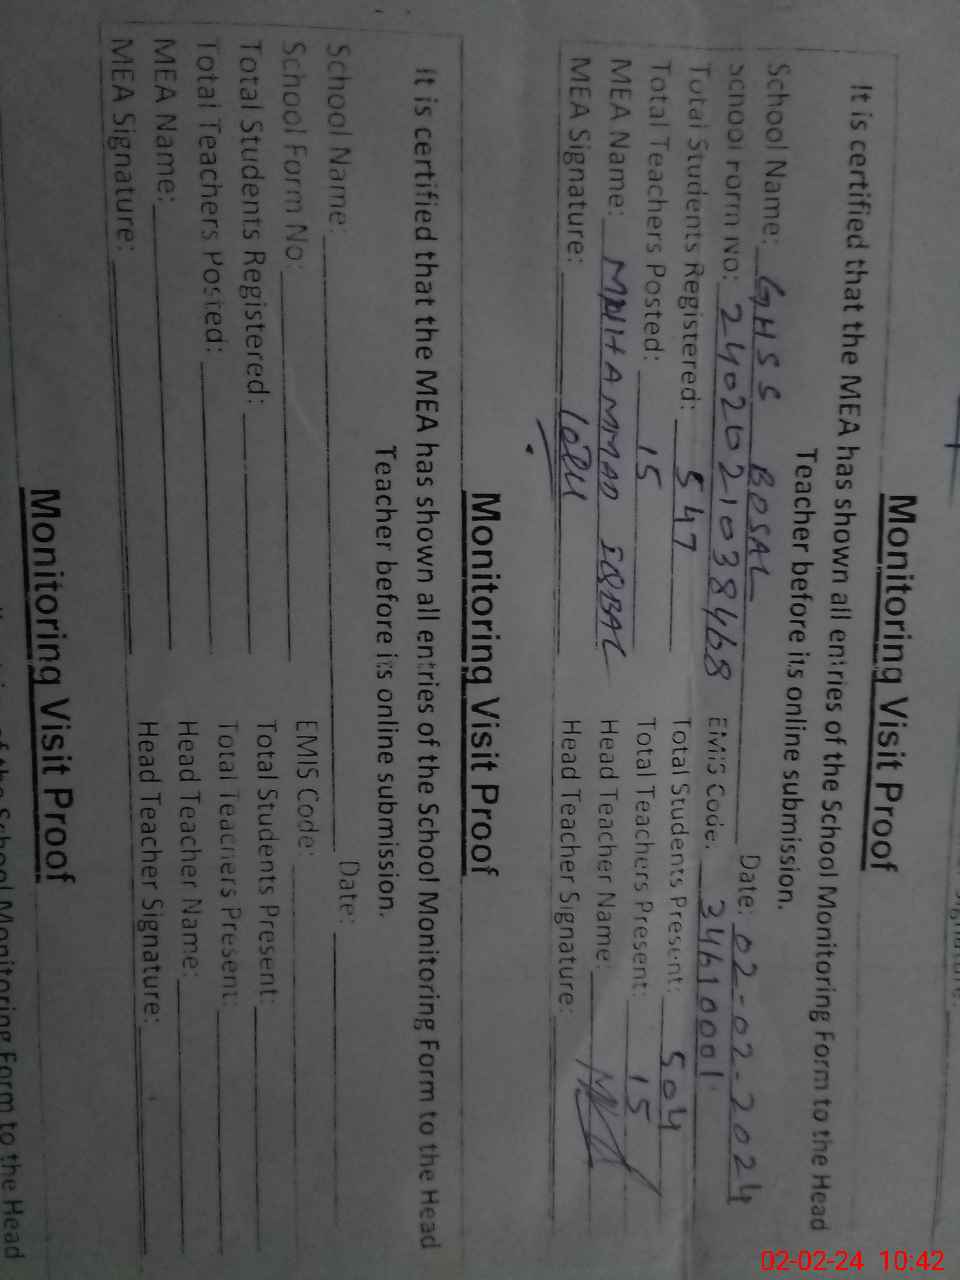 Monitoring Visit Proof
It is certified that the MEA has shown all entries of the School Monitoring Form to the Head
Teacher before its online submission.
School Name: GHSS BOSAL Date: 02-02-2024
School Form No: 24020210384 68 EMIS Code: 34610001
Total Students Registered: 547 Total Students Present: 504
Total Teachers Posted: 15 Total Teachers Present: 15
MEA Name: MUHAMMAD IQBAL Head Teacher Name:
MEA Signature: Head Teacher Signature:
Monitoring Visit Proof
It is certified that the MEA has shown all entries of the School Monitoring Form to the Head
Teacher before its online submission.
School Name: Date:
School Form No: EMIS Code:
Total Students Registered: Total Students Present:
Total Teachers Posted: Total Teachers Present:
MEA Name: Head Teacher Name:
MEA Signature: Head Teacher Signature:
Monitoring Visit Proof
of the School Monitoring Form to the Head
02-02-24 10:42